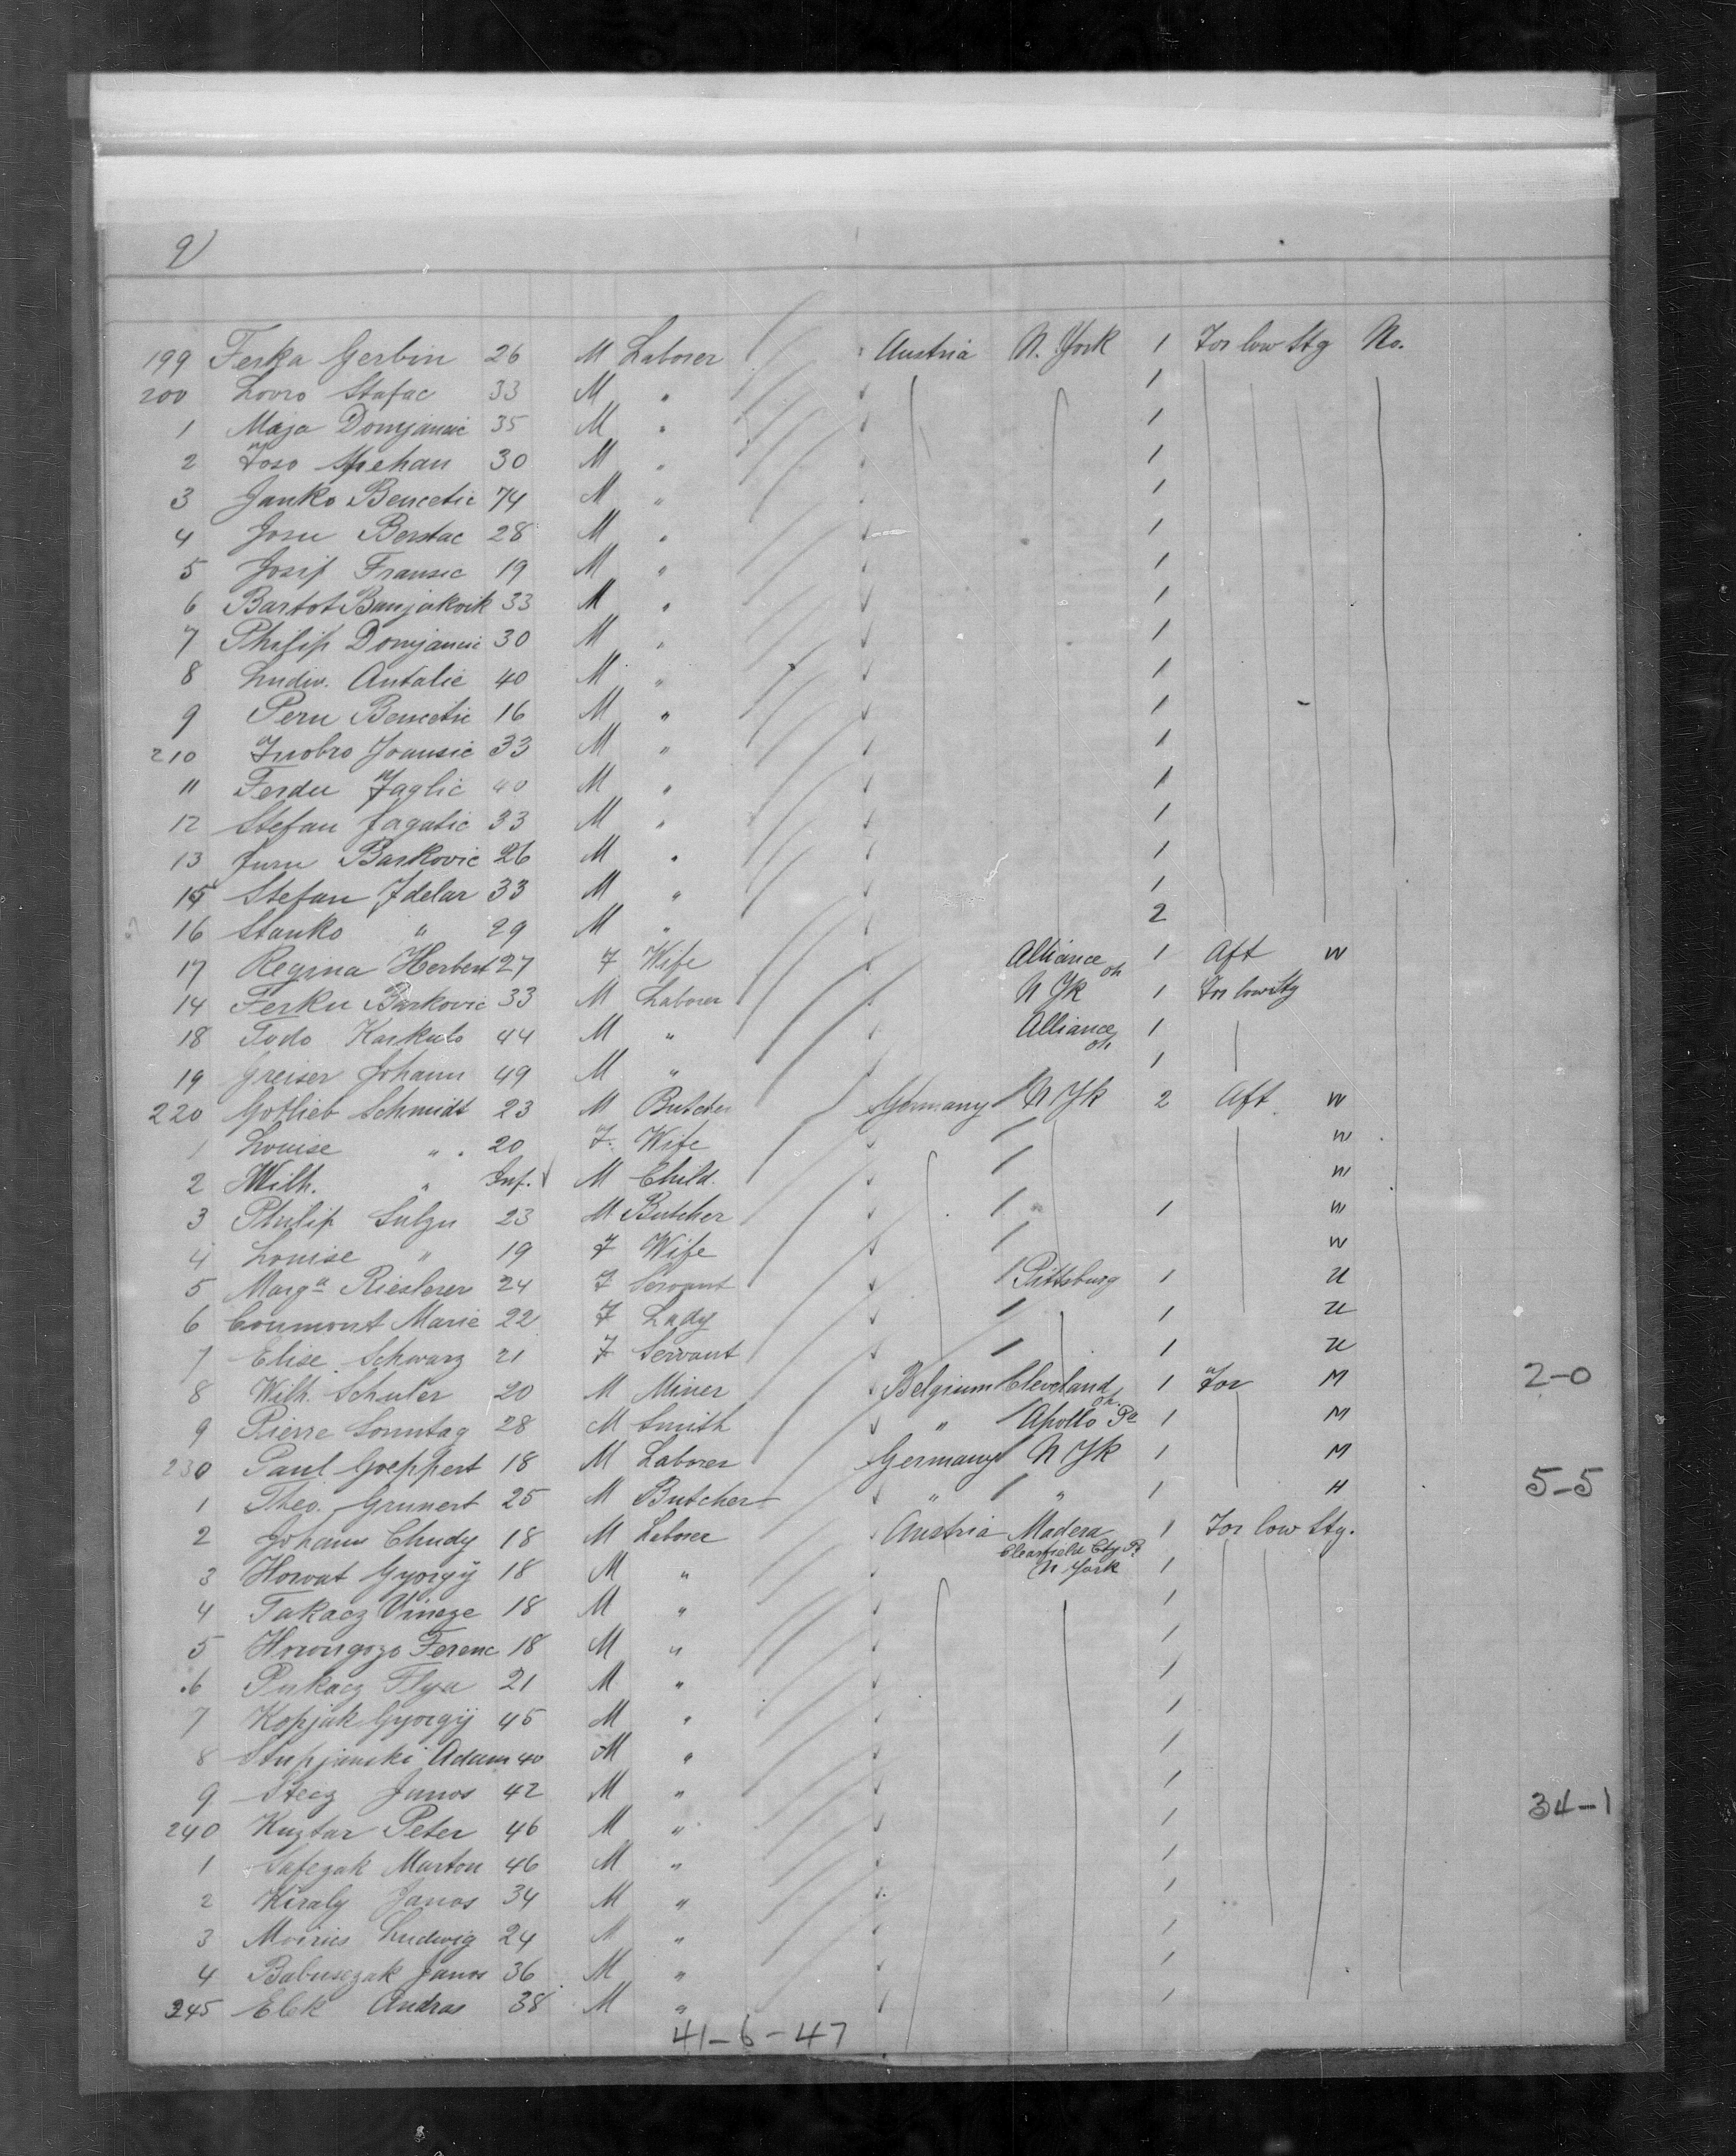 9)
199 Ferka Gerbin 26 M Laborer Austria N. York 1 For low Stg No.
200 Lovro Stafac 33 M " 1
1 Maja Domjancic 35 M " 1
2 Joso Spehan 30 M " 1
3 Janko Bencetic 74 M " 1
4 Josu Berstac 28 M " 1
5 Josip Fransic 19 M " 1
6 Bartot Banjakvik 33 M " 1
7 Philip Domjancic 30 M " 1
8 Ludw. Antalic 40 M " 1
9 Peru Bencetic 16 M " 1
210 Jvansic 33 M " 1
11 Ferdu Jaglic 40 M " 1
12 Stefan Jagatic 33 M " 1
13 Juru Barkovic 26 M " 1
15 Stefan Idelar 33 M " 1
16 Stanko " 29 M " 2
17 Regina Herbert 27 F Wife Alliance Oh 1 Aft W
14 Ferku Barkovic 33 M Laborer N Yk 1 For low Stg
18 Todo Kaskulo 44 M " Alliance Oh 1
19 Greiser Johann 49 M " 1
220 Gottlieb Schmidt 23 M Butcher Germany N Yk 2 Aft W
1 Louise " 20 F. Wife W
2 Wilh. " Inf. M Child. W
3 Philip Sulzu 23 M Butcher 1 W
4 Louise " 19 F Wife W
5 Marga Rieslerer 24 F Servant Pittsburg 1 U
6 Coumont Marie 22 F Lady 1 U
7 Elise Schwarz 21 F Servant 1 U
8 Wilh. Schuler 20 M Miner Belgium Cleveland Oh. 1 For M 2-0
9 Pierre Sonntag 28 M Smith " Apollo Pa 1 M
230 Paul Goeppert 18 M Laborer Germany N Yk 1 M
1 Theo. Grunert 25 M Butcher " " 1 H 5-5
2 Johann Chudy 18 M Laborer Austria Madera Clearfield Cty Pa 1 For low Stg.
3 Horvat Gyorgy 18 M " N York 1
4 Takacz Vincze 18 M " 1
5 Ferenc 18 M " 1
6 Pukacz Ilya 21 M " 1
7 Kopjak Gyorgy 45 M " 1
8 Stupjanski Adam 40 M " 1
9 Stecz Janos 42 M " 1
34-1
240 Kuztar Peter 46 M " 1
1 Safczak Marton 46 M " 1
2 Kiraly Janos 34 M " 1
3 Ludwig 24 M " 1
4 Babusczak Janos 36 M " 1
245 Elek Andras 38 M " 1
41-6-47